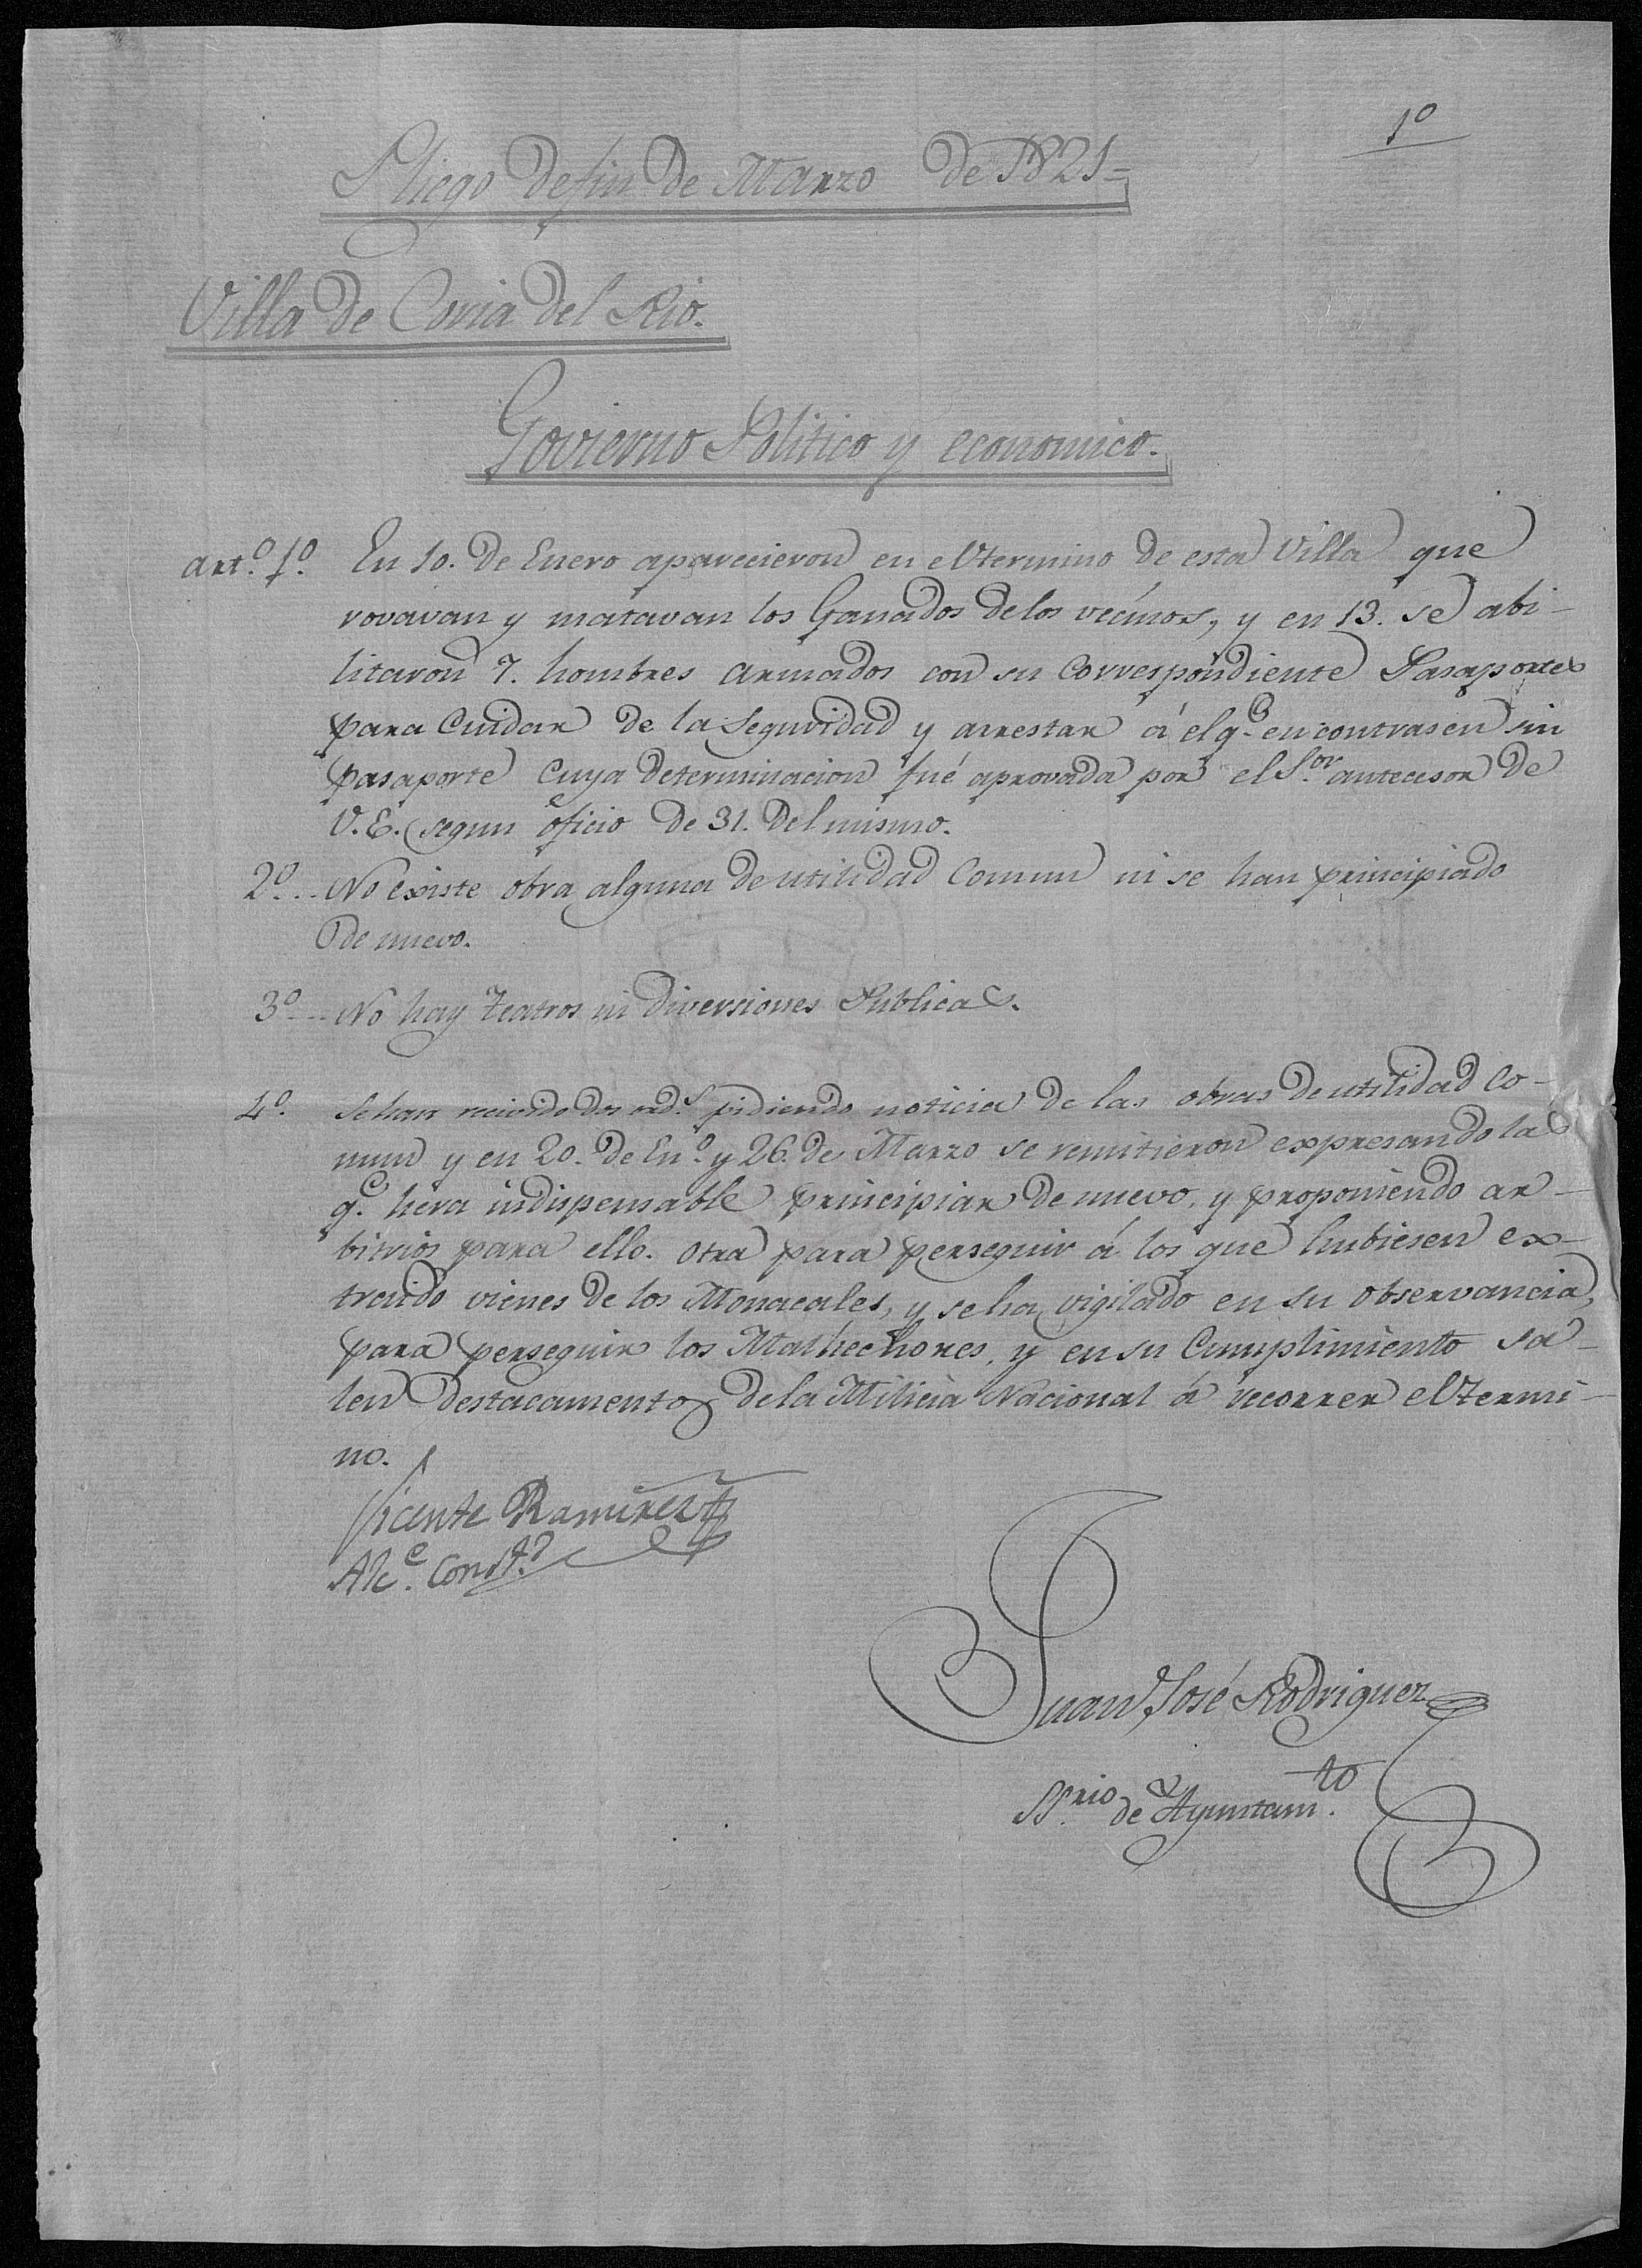 1º
Pliego de fin de Marzo de 1821=
Villa de Coria del Rio.
Govierno Politico y economico.
Artº. 1º. En 10. de Enero aparecieron en el termino de esta Villa que
rovavan y matavan los Ganados de los vecinos, y en 13. se abi-
litaron 7. hombres armados con su correspondiente Pasaportes
para Cuidar de la Seguridad y arrestar á el qe. encontrasen sin
pasaporte cuya determinacion fué aprovada por el Sor. antecesor de
V.E. segun oficio de 31. del mismo.
2º... No existe obra alguna de utilidad Comun ni se han principiado
de nuevo.
3º... No hay Teatros ni diversiones Publicas.
4º. Se han recivido dos ords. pidiendo noticia de las obras de utilidad co-
mun y en 20. de Enº. y 26. de Marzo se remitieron expresando las
qe. hera indispensable principiar de nuevo, y proponiendo ar-
bitrios para ello. Otra para perseguir á los que hubiesen ex-
traido vienes de los Monacales, y se ha vigilado en su observancia,
para perseguir los Malhechores, y en su Cumplimiento sa-
len destacamentos de la Milicia Nacional á recorrer el termi-
no.
Vicente Ramirez
Alce. Constl.
Juan José Rodriguez
SSrio. de Ayuntamto.